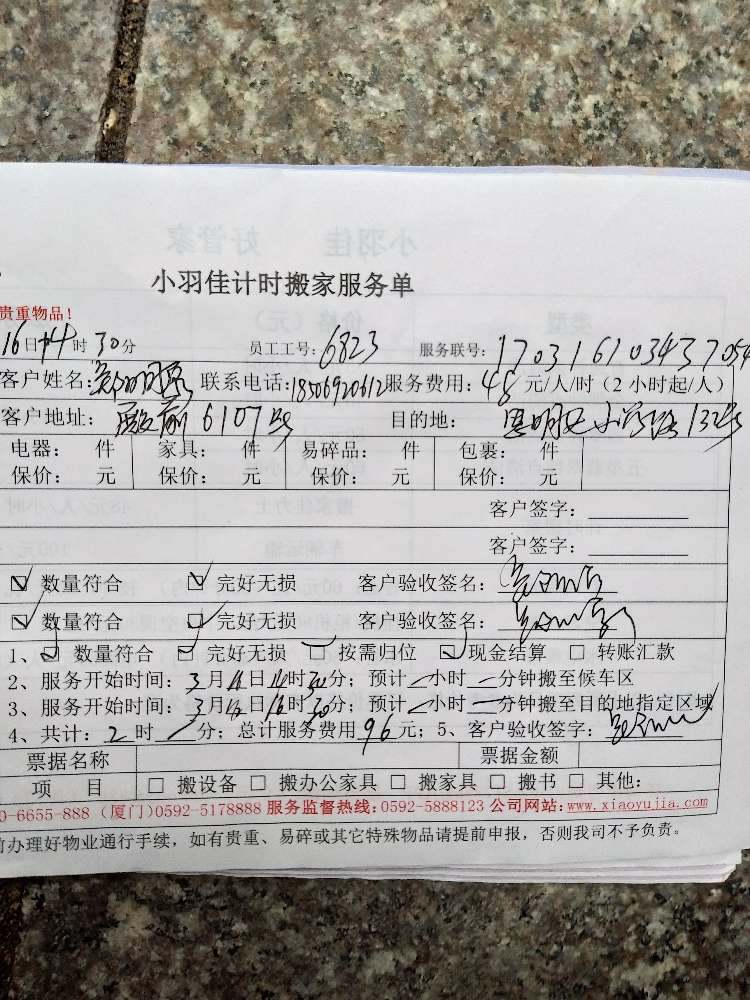 小羽佳计时搬家服务单
贵重物品!
16日14时30分 员工工号:6823 服务联号:170316103437054
客户姓名: 联系电话:18506920612 服务费用:48元/人/时(2小时起/人)
客户地址:殿前6107号 目的地:思明区 路132号
电器: 件 家具: 件 易碎品: 件 包裹: 件
保价: 元 保价: 元 保价: 元 保价: 元
客户签字:
客户签字:
☑ 数量符合 ☑ 完好无损 客户验收签名:
☑ 数量符合 ☑ 完好无损 客户验收签名:
1、☑ 数量符合 ☑ 完好无损 □ 按需归位 ☑ 现金结算 □ 转账汇款
2、服务开始时间:3月 日 时30分;预计 小时 分钟搬至候车区
3、服务开始时间:3月 日 时30分;预计 小时 分钟搬至目的地指定区域
4、共计:2时 分;总计服务费用96元;5、客户验收签字:
票据名称 票据金额
项 目 □ 搬设备 □ 搬办公家具 □ 搬家具 □ 搬书 □ 其他:
0-6655-888 (厦门)0592-5178888 服务监督热线:0592-5888123 公司网站:www.xiaoyujia.com
前办理好物业通行手续,如有贵重、易碎或其它特殊物品请提前申报,否则我司不予负责。